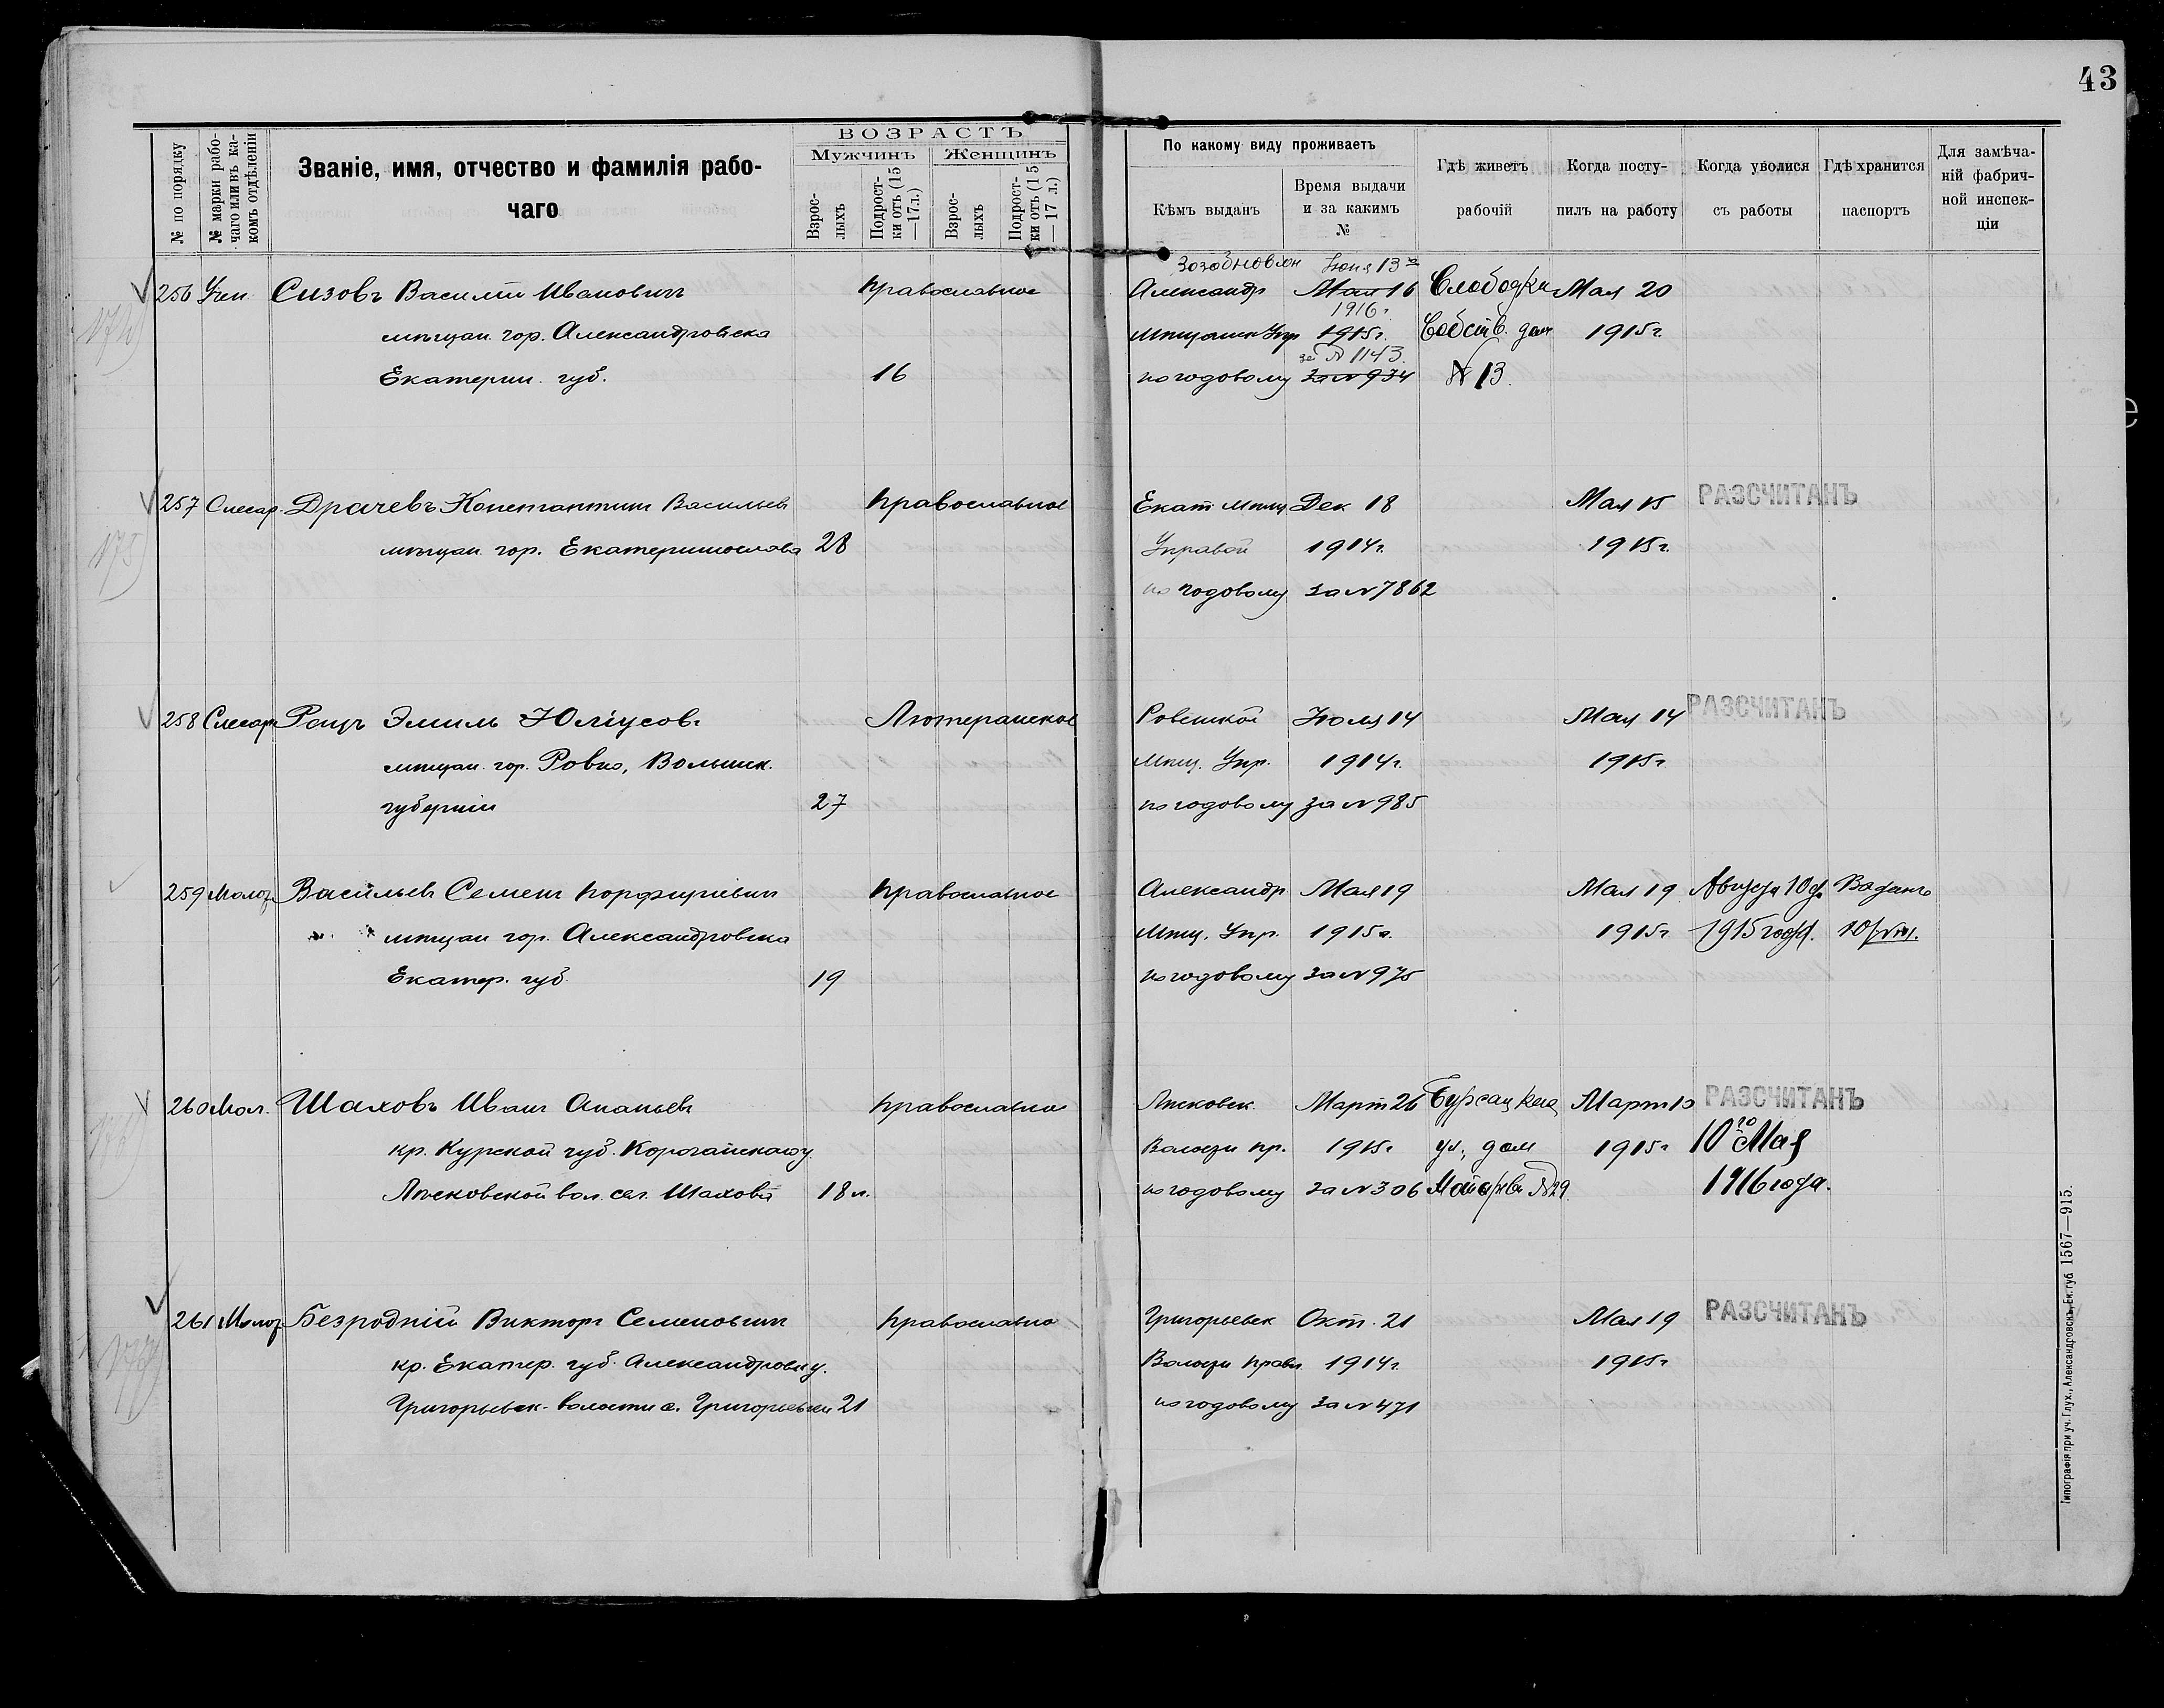 43
№ по порядку
№ марки рабо-
чаго или въ ка-
комъ отдѣленіи
Званіе, имя, отчество и фамилія рабо-
чаго
ВОЗРАСТЪ
Мужчинъ
Женщинъ
Взрос-
лыхъ
Подрост-
ки отъ (15
—17 л.)
Взрос-
лыхъ
Подрост-
ки отъ (15
—17 л.)
По какому виду проживаетъ
Кѣмъ выданъ
Время выдачи
и за какимъ
№
Гдѣ живетъ
рабочій
Когда посту-
пилъ на работу
Когда уволися
съ работы
Гдѣ хранится
паспортъ
Для замѣча-
ній фабрич-
ной инспек-
ціи
256 Учен. Сизовъ Василій Ивановичъ Православное
мѣщан. гор. Александровска
Екатерин. губ. 16
Іюня 13
Александр Мая 16 Слободка Мая 20
1916 г.
Мѣщанск Упр 1915 г. Собств. дом 1915 г.
за № 1143.
по годовому за № 934 № 13.
257 Слесар. Драчевъ Константин Васильев Православное
мѣщан. гор. Екатеринослава 28
Екат мѣщ Дек 18 Мая 15 РАЗСЧИТАНЪ
Управой 1914 г. 1915 г.
по годовому за № 7862
258 Слесар Рацъ Эмиль Юліусов. Лютеранское
мѣщан. гор. Ровно, Волынск.
губерніи 27
Ровенской Іюля 14 Мая 14 РАЗСЧИТАНЪ
Мѣщ. Упр. 1914 г. 1915 г
по годовому за № 985
259 Молот Васильев Семен Порфиріевич Православное
мѣщан гор. Александровска
Екатер. губ. 19
Александр Мая 19 Мая 19 Августа 10 д.
Мѣщ. Упр. 1915 г. 1915 г 1915 года. 10/VIII.
по годовому за № 975
260 Мол. Шаховъ Иван Ананьев Православно
кр. Курской губ. Корочанскаго у.
вол. сел. Шахова 18 л.
Март 26 Март 10 РАЗСЧИТАНЪ
Волостн пр. 1915 г. ул., дом 1915 г 10го Мая
по годовому за № 306 № 29. 1916 года.
261 Молот Безродній Виктор Семенович Православно
кр. Екатер. губ. Александровск у.
Григорьевск. волости с. Григорьевки 21
Григорьевск Окт. 21 Мая 19 РАЗСЧИТАНЪ
Волостн Правл 1914 г. 1915 г
по годовому за № 471
Типографія при уч. Глух., Александровскъ, Ек. губ 1567—915.